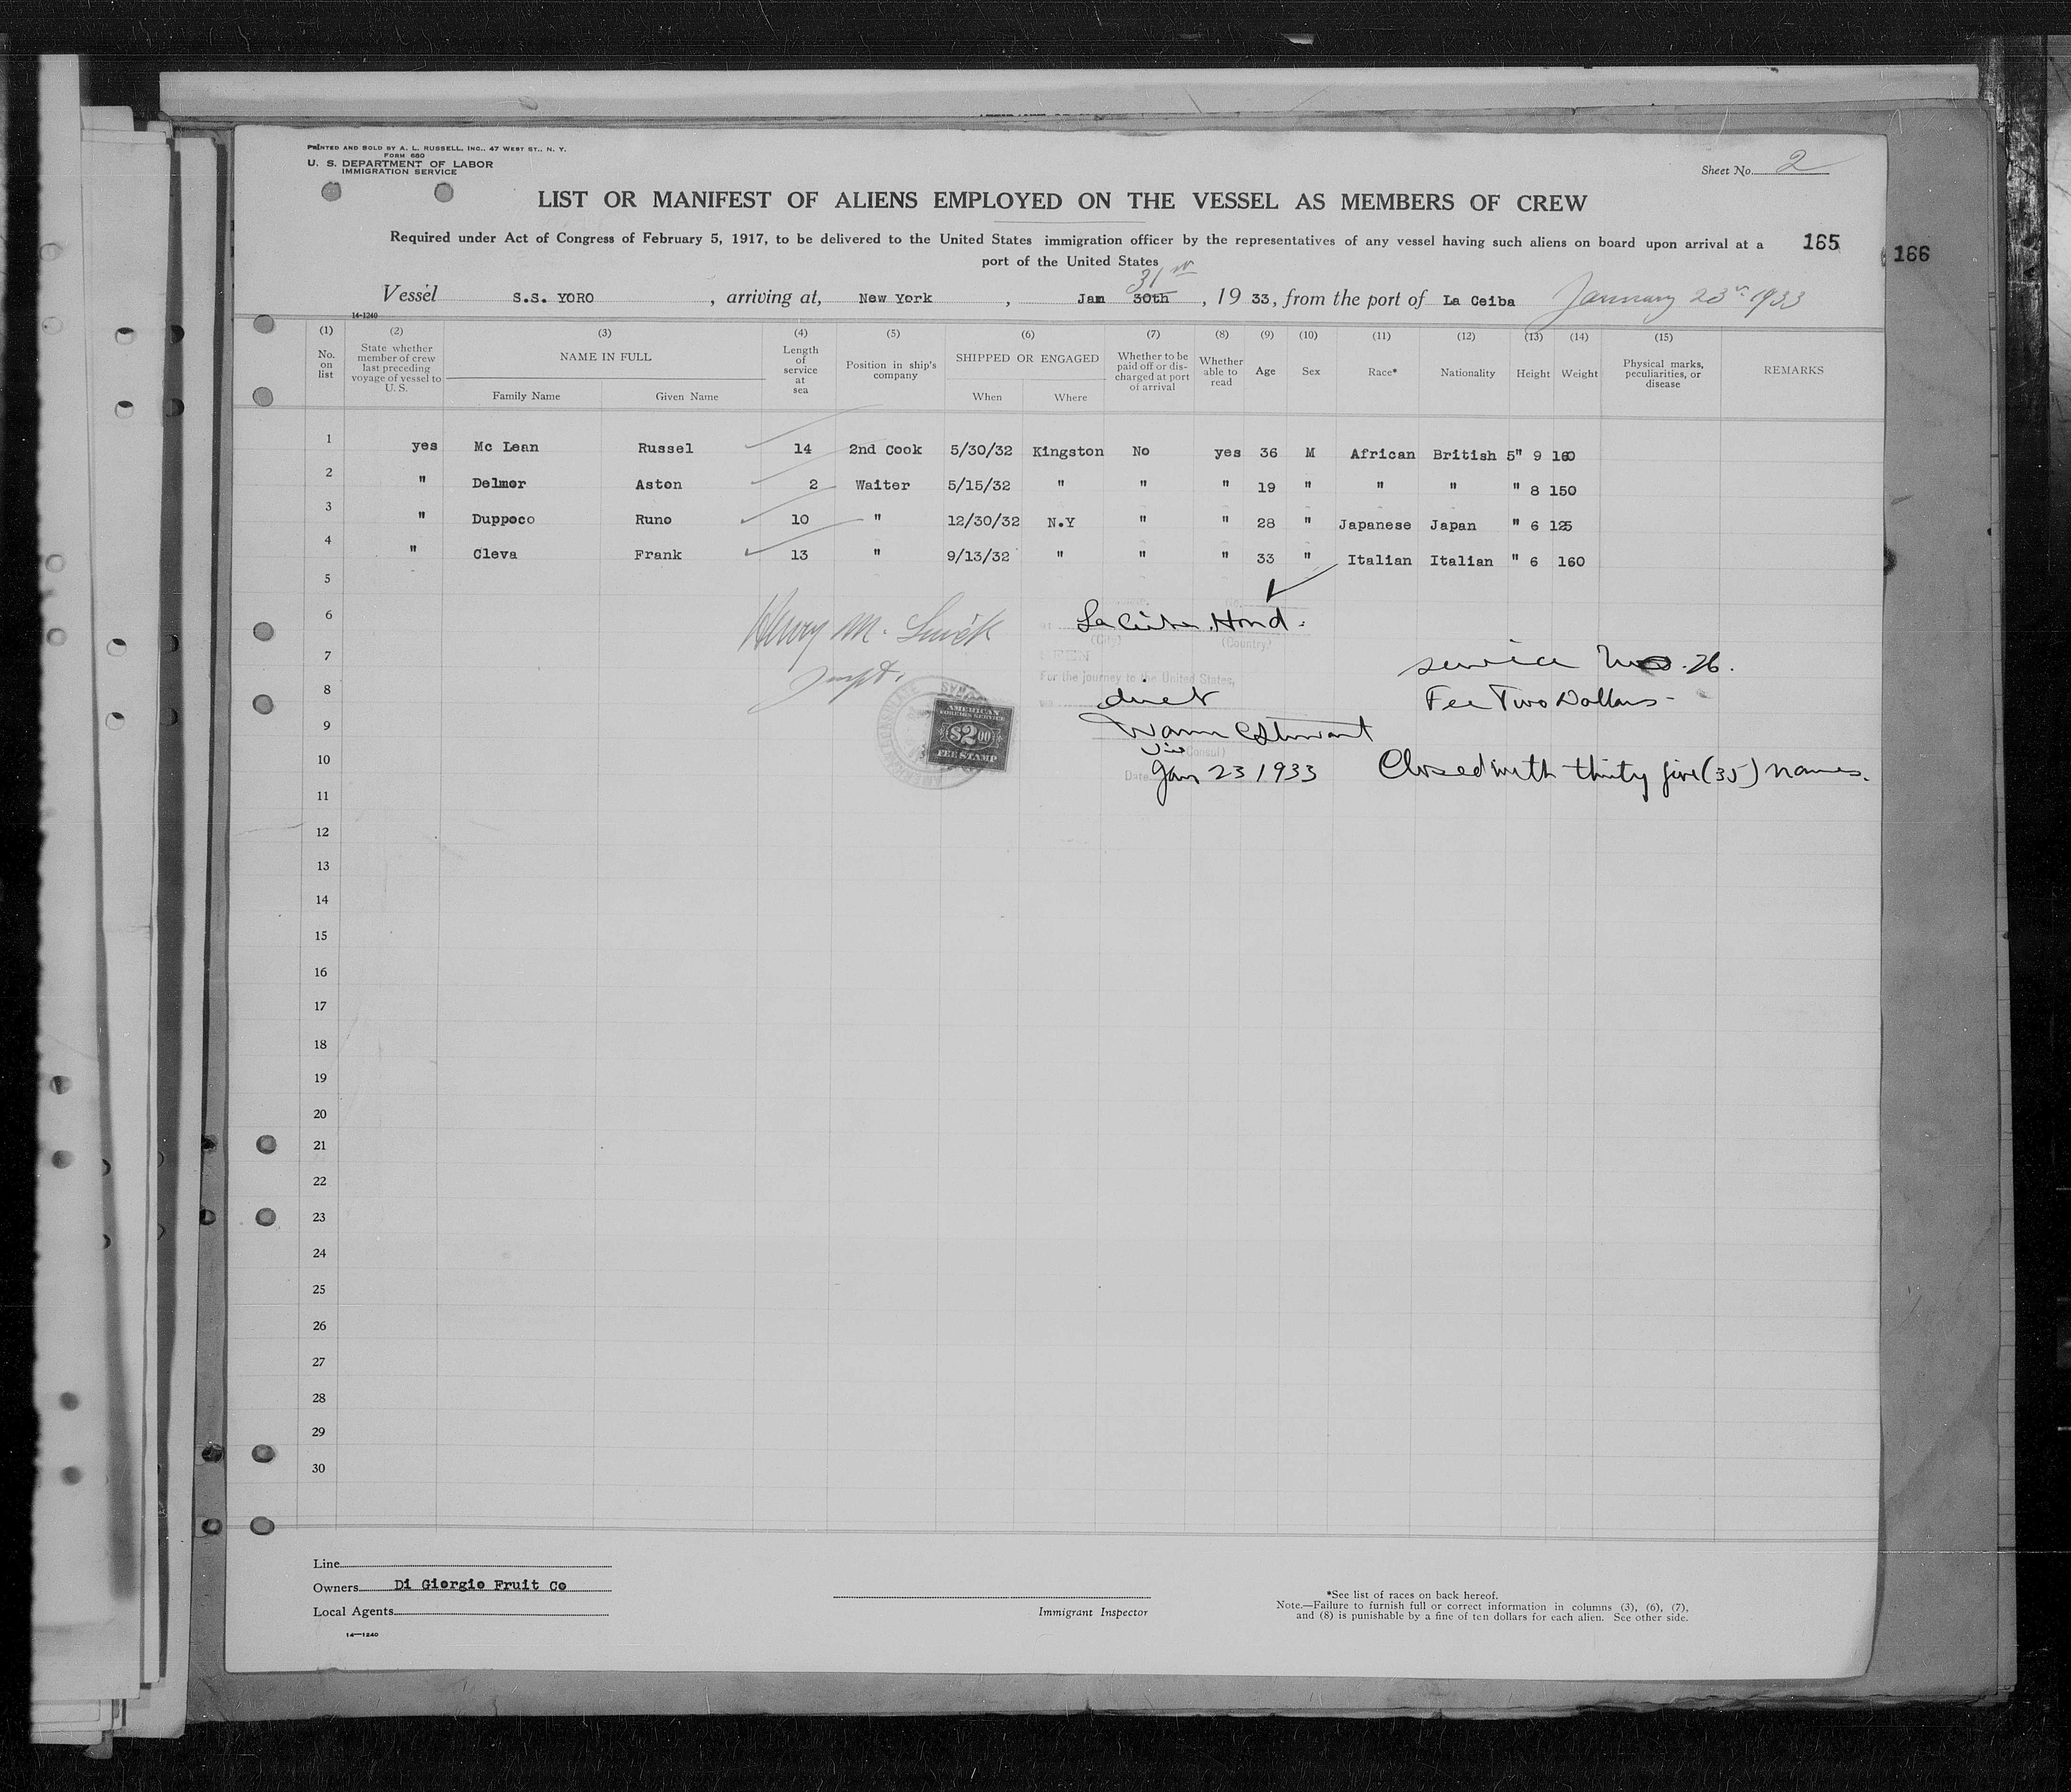 PRINTED AND SOLD BY A. L. RUSSELL, INC., 47 WEST ST., N. Y.
FORM 680
U. S. DEPARTMENT OF LABOR
IMMIGRATION SERVICE
Sheet No. 2
LIST OR MANIFEST OF ALIENS EMPLOYED ON THE VESSEL AS MEMBERS OF CREW
Required under Act of Congress of February 5, 1917, to be delivered to the United States immigration officer by the representatives of any vessel having such aliens on board upon arrival at a
port of the United States
165
166
31st
Vessel S.S. YORO, arriving at, New York, Jan 30th, 1933, from the port of La Ceiba January 23rd 1933
14-1240
(1) (2) (3) (4) (5) (6) (7) (8) (9) (10) (11) (12) (13) (14) (15)
No. on list
State whether member of crew last preceding voyage of vessel to U. S.
NAME IN FULL
Family Name
Given Name
Length of service at sea
Position in ship's company
SHIPPED OR ENGAGED
When
Where
Whether to be paid off or discharged at port of arrival
Whether able to read
Age
Sex
Race*
Nationality
Height
Weight
Physical marks, peculiarities, or disease
REMARKS
1 yes Mc Lean Russel 14 2nd Cook 5/30/32 Kingston No yes 36 M African British 5" 9 160
2 " Delmor Aston 2 Waiter 5/15/32 " " " 19 " " " " 8 150
3 " Duppoco Runo 10 " 12/30/32 N.Y " " 28 " Japanese Japan " 6 125
4 " Cleva Frank 13 " 9/13/32 " " " 33 " Italian Italian " 6 160
5
6 Henry M. La Ceiba, Hond.
(City) (Country)
7 SEEN service No. 26.
For the journey to the United States,
8 direct Fee Two Dollars
9 AMERICAN
FOREIGN SERVICE
$2.00
FEE STAMP
Stewart
Vice Consul)
10 Date Jan 23 1933 Closed with thirty five (35) names.
11
12
13
14
15
16
17
18
19
20
21
22
23
24
25
26
27
28
29
30
Line
Owners Di Giorgio Fruit Co
Local Agents
14—1240
Immigrant Inspector
*See list of races on back hereof.
Note.—Failure to furnish full or correct information in columns (3), (6), (7),
and (8) is punishable by a fine of ten dollars for each alien. See other side.